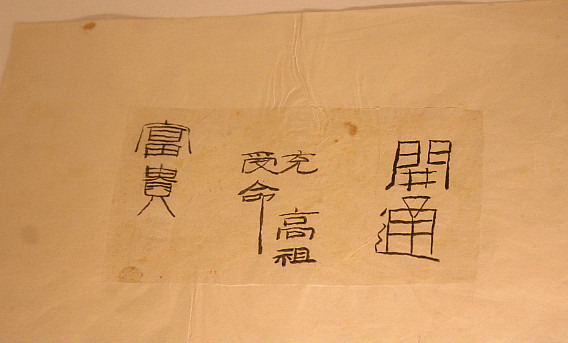 開通
充 高祖
受命
富貴